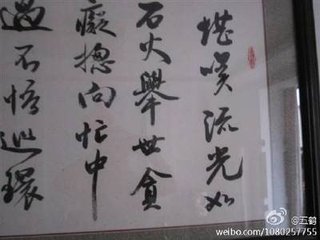 堪嘆流光如
石火舉世貪
癡揔向忙中
過不悟巡環
五鶴
weibo.com/1080257755